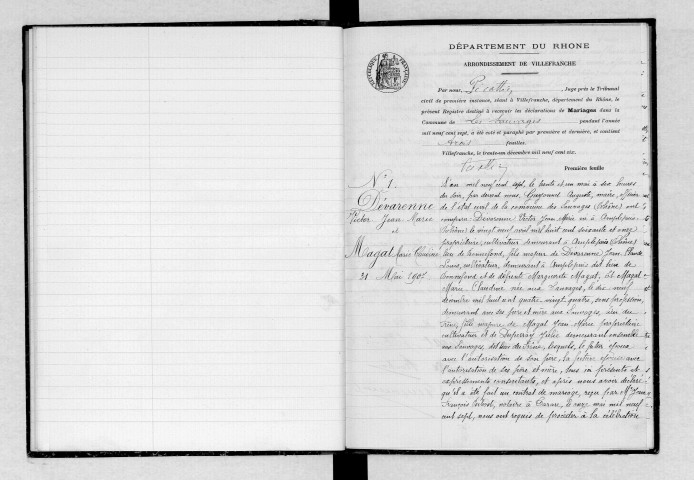 DÉPARTEMENT DU RHONE
ARRONDISSEMENT DE VILLEFRANCHE
Par nous, Juge près le Tribunal
civil de première instance, séant à Villefranche, département du Rhône, le
présent Registre destiné à recevoir les déclarations de Mariages dans la
Commune de Les Sauvages pendant l'année
mil neuf cent sept, a été coté et paraphé par première et dernière, et contient
feuilles.
Villefranche, le trente-un décembre mil neuf cent six.
Première feuille
N° 1.
Dévarenne
Victor Jean Marie
et
Magat Marie Claudine
31 Mai 1907
L'an mil neuf cent sept, le trente et un mai à dix heures
du soir, par devant nous, Guyonnet Auguste, maire, officier
de l'état civil de la commune des Sauvages (Rhône) ont
comparu Devarenne Victor Jean Marie né à Amplepuis
(Rhône) le vingt neuf avril mil huit cent soixante et onze
propriétaire, cultivateur demeurant à Amplepuis (Rhône)
lieu de fils majeur de Devarenne Jean Claude
cultivateur, demeurant à Amplepuis dit lieu de
et de défunte Marguerite Magat, Et Magat
Marie Claudine née aux Sauvages, le dix neuf
décembre mil huit cent quatre vingt quatre, sans profession,
demeurant avec ses père et mère aux Sauvages, lieu du
fille majeure de Magat Jean Marie propriétaire
cultivateur et de Julie demeurant ensemble
aux Sauvages, dit lieu du lesquels, le futur époux
avec l'autorisation de son père, la future épouse avec
l'autorisation de ses père et mère, tous ici présents et
expressément consentants, et après nous avoir déclaré
qu'il a été fait un contrat de mariage, reçu par Me
François notaire à Tarare, le onze mai mil neuf
cent sept, nous ont requis de procéder à la célébration